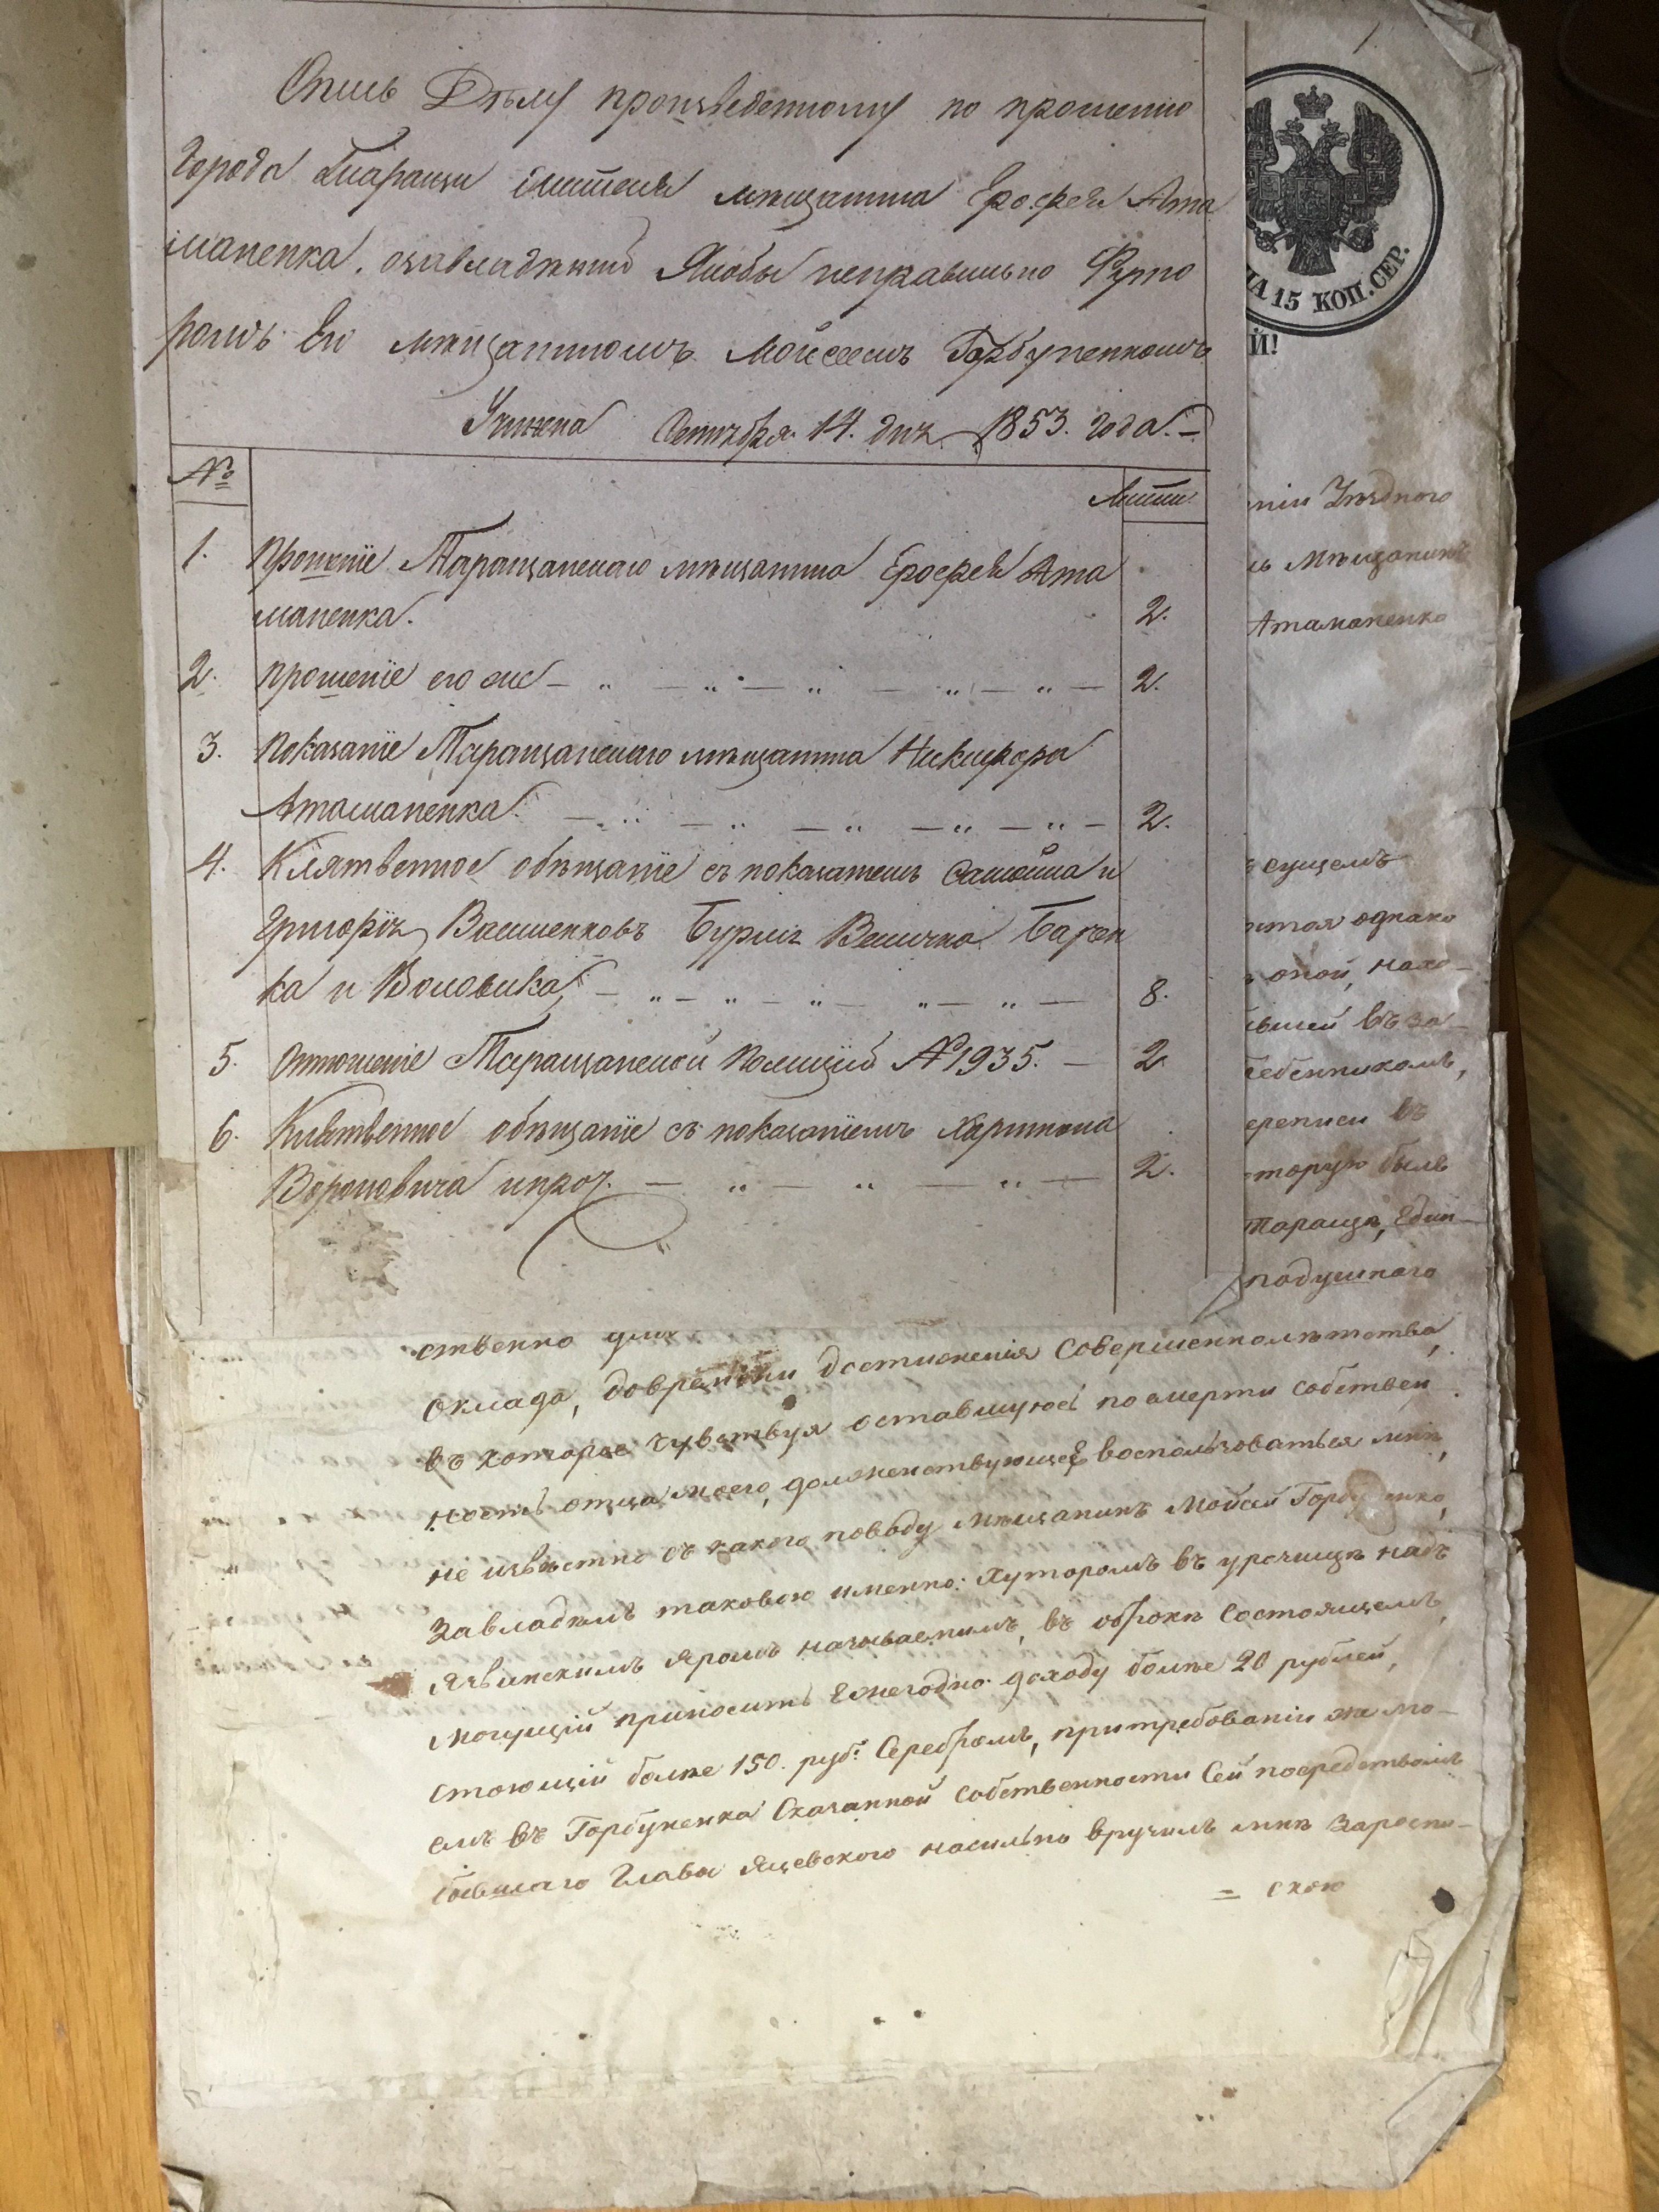 Опись Дѣлу произведенному по прошенію
Города Таращи жителя мѣщанина Ерофея Ата
маненка, озавладѣніи Якобы неправильно Футо
ромъ Его мѣщаниномъ Мойсеемъ Горбуненкомъ
Учинена Октября 14. дня 1853. года.—
№ Листы.
1. Прошеніе Таращанскаго мѣщанина Ерофея Ата
маненка. 2.
2. Прошеніе его же — „ — „ — „ — „ — „ — 2.
3. Показаніе Таращанскаго мѣщанина Никифора
Атаманенка. — „ — „ — „ — „ — „ — 2.
4. Клятвенное обѣщаніе съ показаніемъ Самойла и
Григорія Василенковъ Бурлы Велична Барен
ка и Воловика, — „ — „ — „ — „ — „ — 8.
5. Отношеніе Таращанской Полиціи №1935. — 2.
6. Клятвенное обѣщаніе съ показаніемъ Харитона
Вороновича ипроч. — „ — „ — „ — 2.
1.
НА 15 КОП. СЕР.
Й!
ніи Уѣзднаго
ь Мѣщанинъ
Атаманенко
сущемъ
однако
оной, нахо-
въ за-
ебенникомъ,
ереписи въ
торую былъ
Таращѣ, Един-
подушнаго
ственно для
оклада, довремени достиженія Совершеннолѣтства,
въ которое чувствуя оставшуюсь посмерти собствен
ность отца моего, долженствующей воспользоваться мнѣ,
не извѣстно съ какого поводу Мѣщанинъ Мойсей Горбуненко,
Завладѣлъ таковою именно: Хуторомъ въ урочищѣ надъ
Язвинскимъ Яромъ называемымъ, въ оброкѣ Состоящемъ,
могущій приносить Ежегодно доходу болѣе 20 рублей,
стоющій болѣе 150. руб: Серебромъ, притребованіи же мо-
емъ въ Горбуненка Сказанной Собственности Сей посредствомъ
бывшаго Главы Яцевского насильно вручилъ мнѣ Зароспи-
= скою